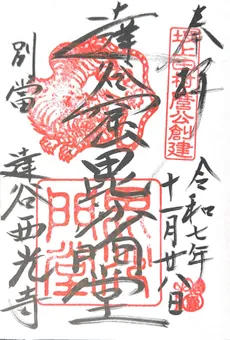 奉拝
坂上田村麿公創建
令和七年
十一月廿八日
達谷窟毘沙門堂
毘沙門堂
別當
達谷西光寺